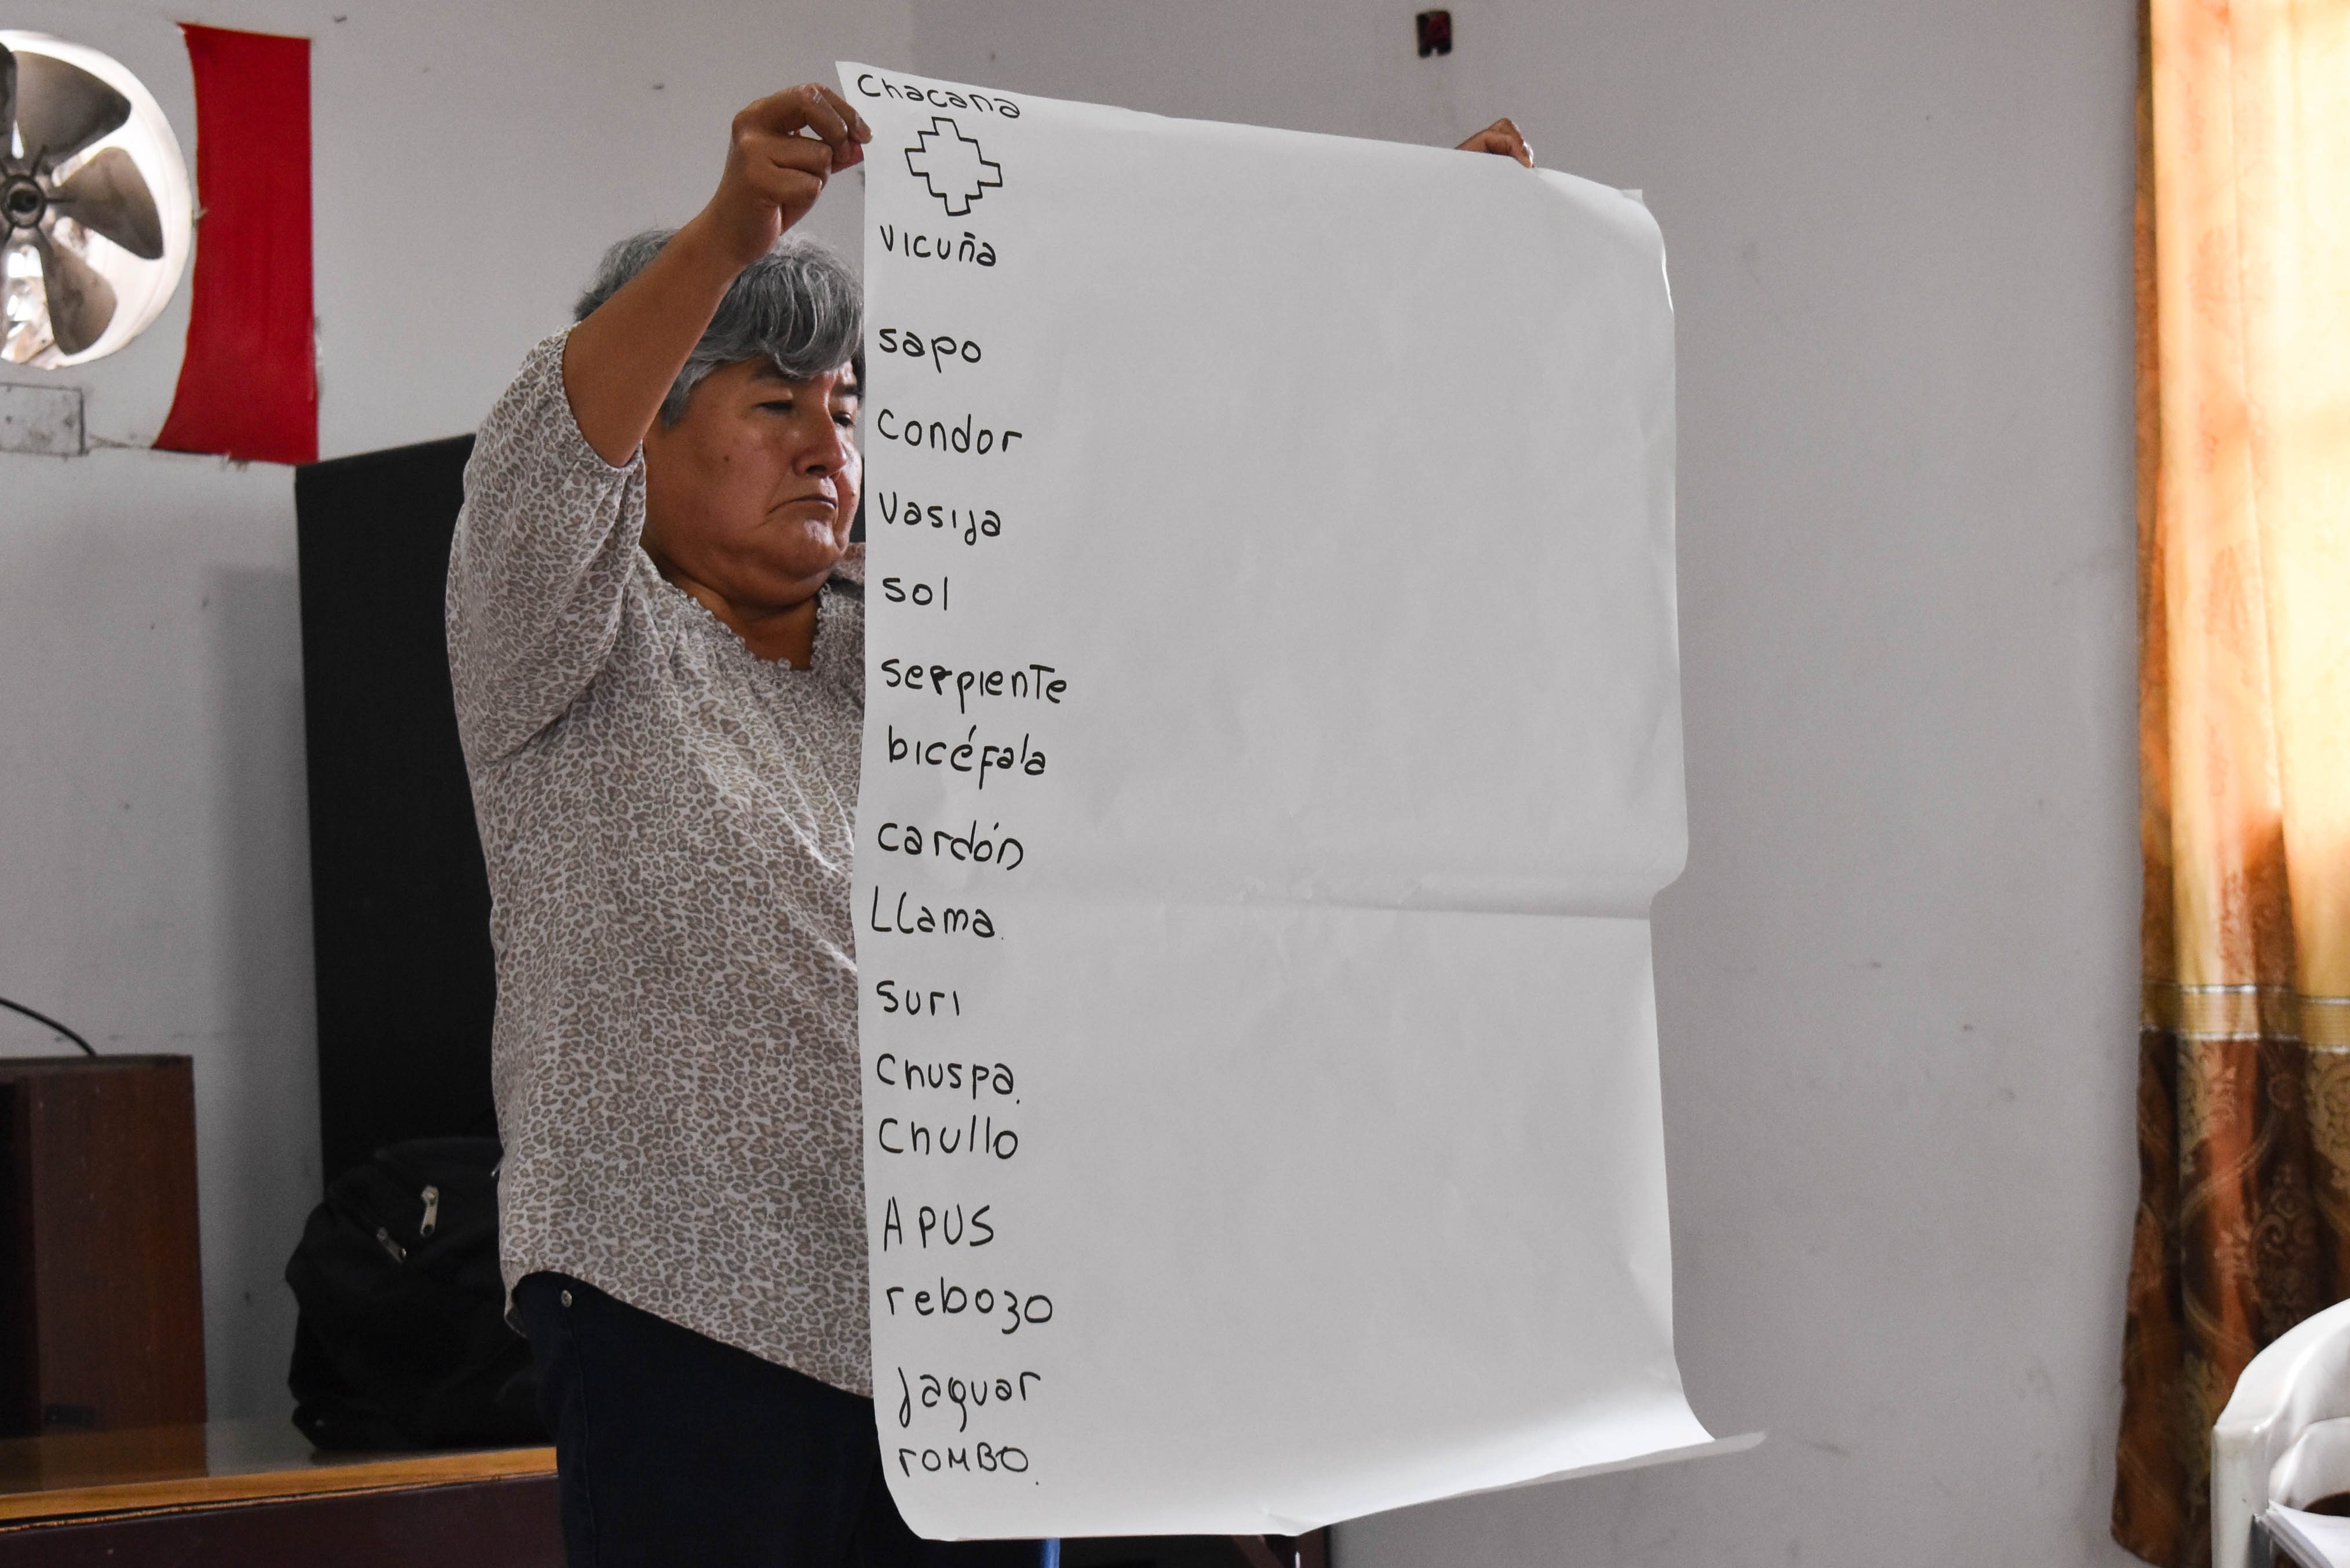 Chacana
vicuña
sapo
Condor
Vasija
sol
serpiente
bicéfala
cardón
Llama.
suri
Chuspa.
Chullo
APUS
rebozo
Jaguar
roMBO.